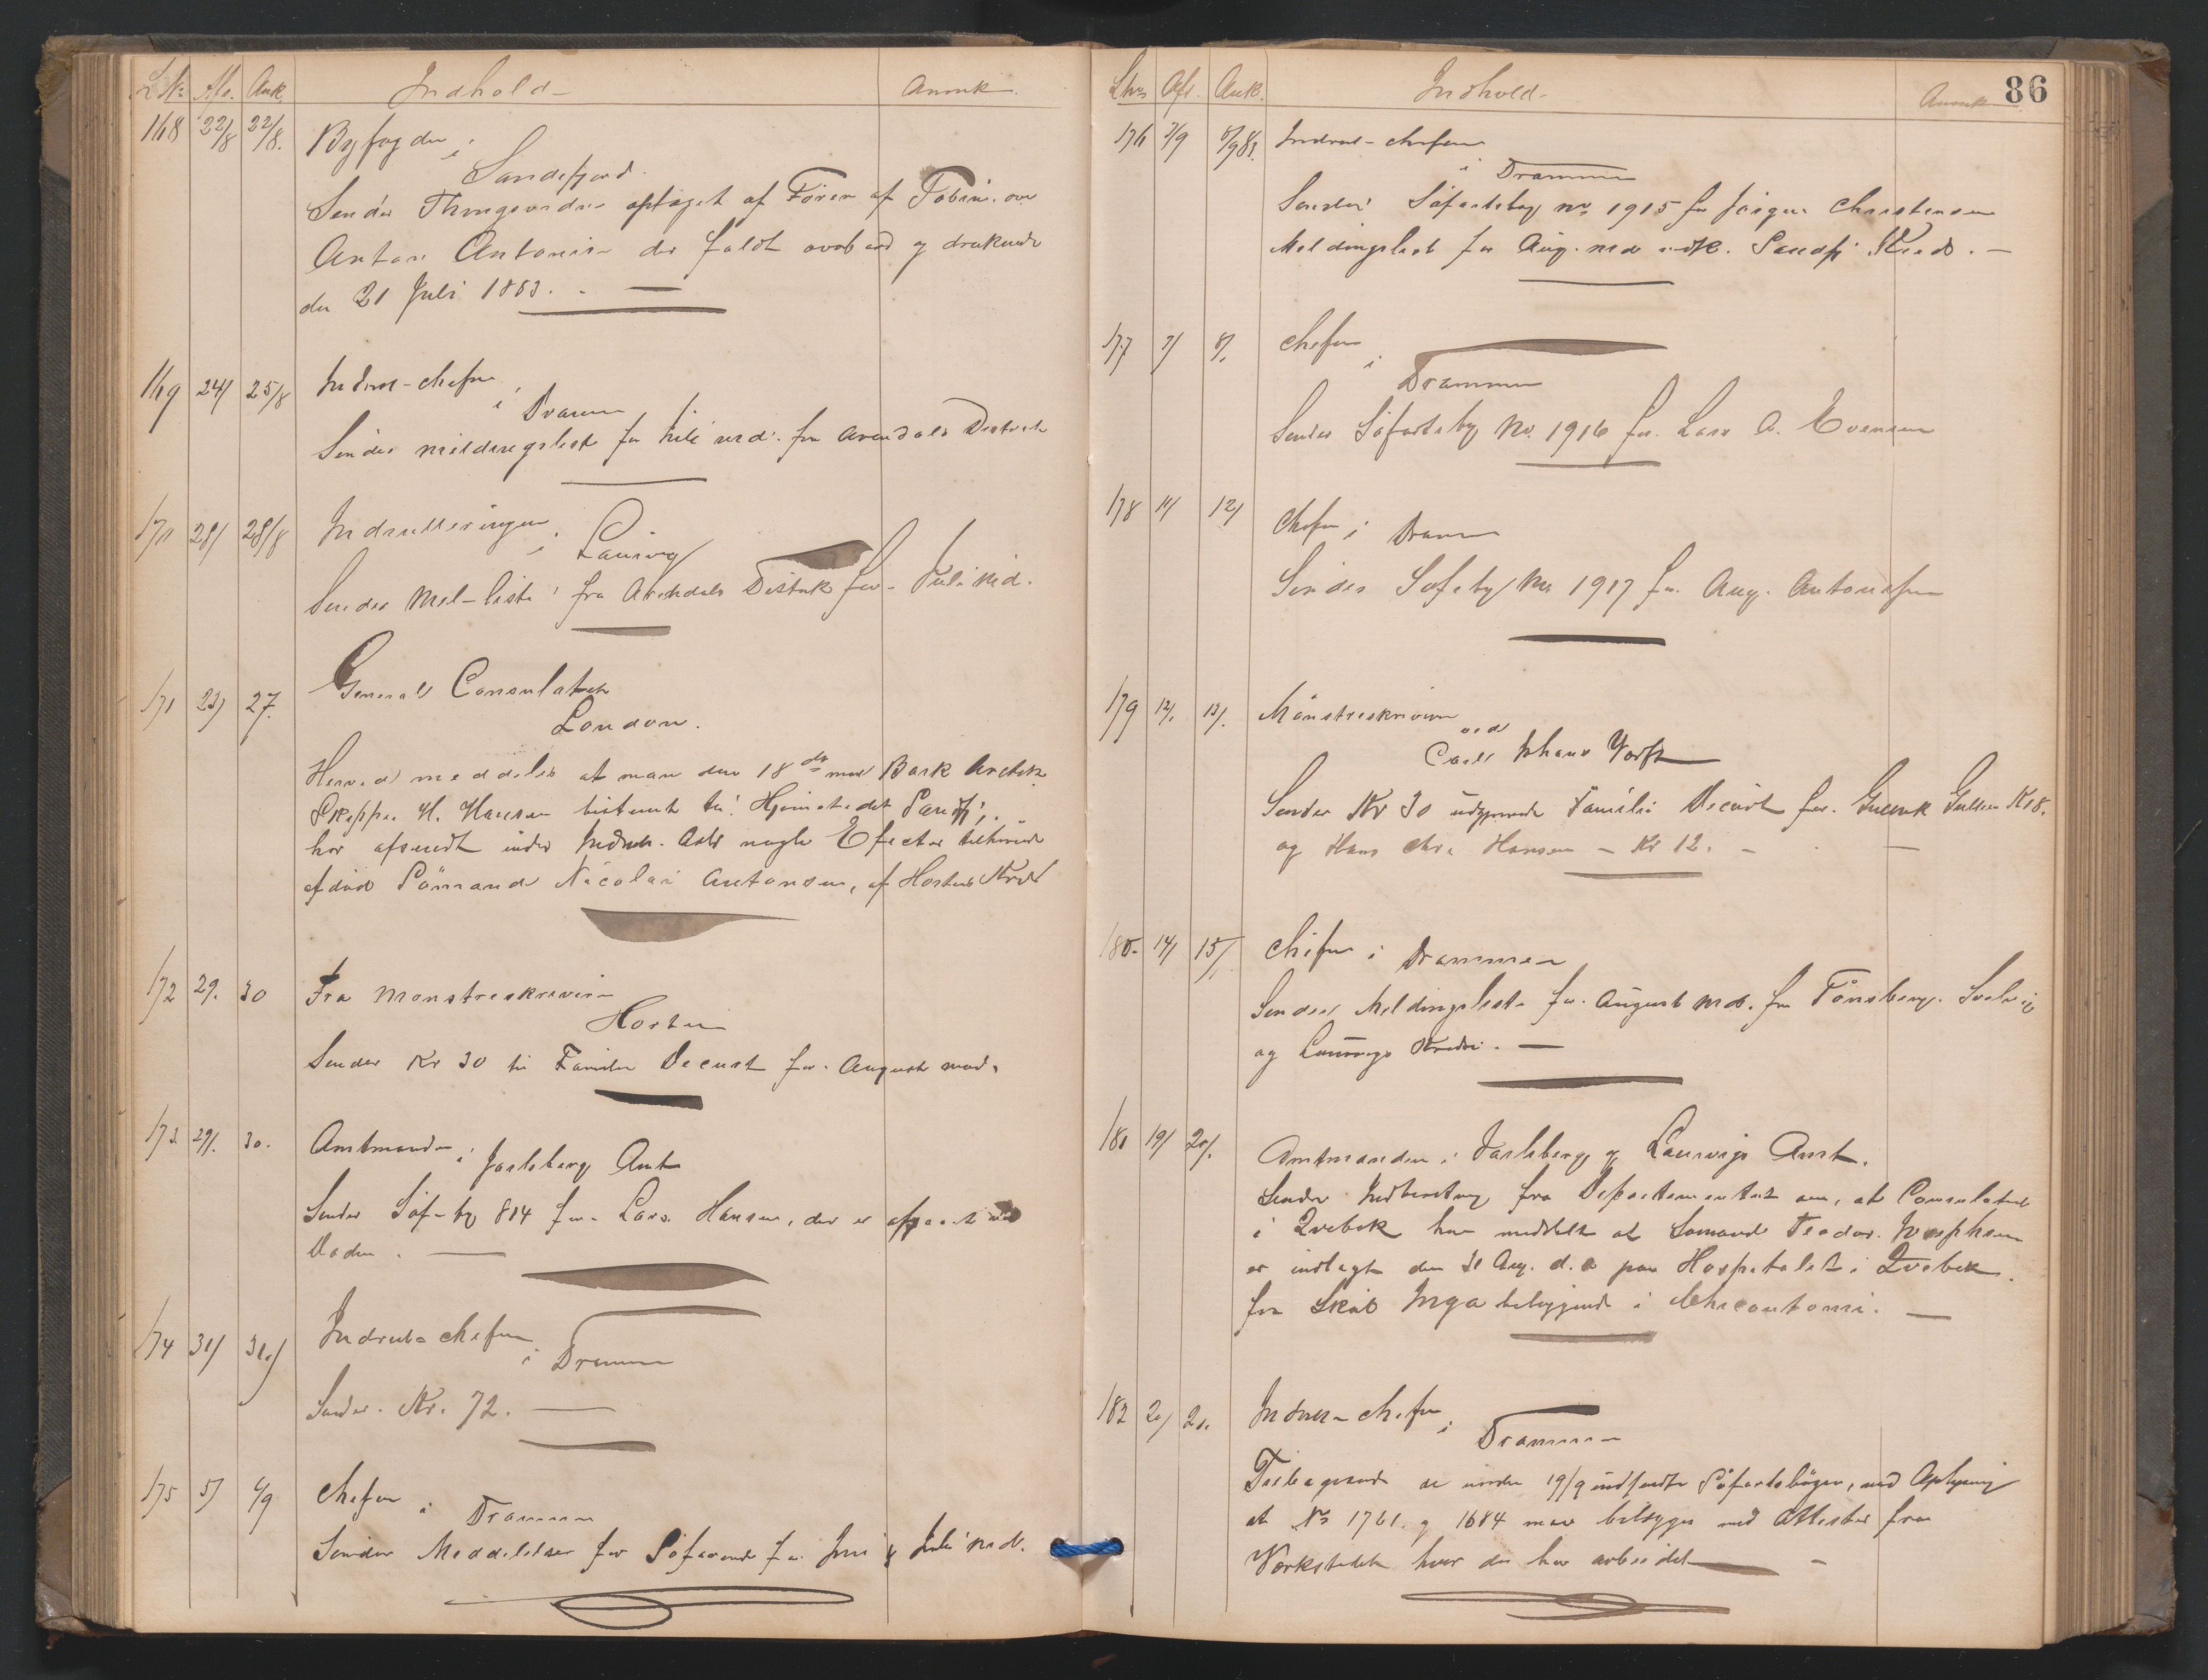 L№ Afs. Ank. Indhold Anmk.
168 22/8 22/8. Byfogden
i Sandefjord.
Sender Thingsvidne optaget af Føreren af Tobin. om
Anton Antonisen der faldt overbord og druknede
den 21 Juli 1883. —
169 24/ 25/8 Indrul-chefen
i Drammen
Sender meldingsliste for Juli md. fra Arendals Distrikt
170 28/ 28/8 Indrulleringen
i Laurvig
Sender Mel-liste fra Arendals Distrikt for Juli Md.
171 23/ 27. General Consulatet
London.
Herved meddeles at man den 18de med Bark
Skipper H. Hansen bestemt til Hjemstedet Sandfj.
har afsendt under Indrul. Adr nogle Efecter tilhørende
afdød Sømand Nicolai Antonsen, af Hortens Kreds
172 29. 30 Fra Mønstreskriveren
Horten
Sender Kr 30 til Familie Decurt for August md.
173 29/. 30. Amtmanden i Jarlsberg Amt
Sender Søf-bg 814 for Lars Hansen, der er afgaaet ved
Døden. —
174 31/ 31/ Indrul-chefen
i Drammen
Sender. Kr. 72. —
175 5/ 6/9 Chefen i Drammen
Sender Meddelelser for Søfarende for Juni & Juli md.
86
L№ Afs. Ank. Indhold Anmk
176 7/9 8/9 83. Indrul-chefen
i Drammen
Sender Søfartsbog № 1915 for Jørgen Christensen
Meldingslist for Aug. md Sandfj. Kreds. —
177 7/ 8/. Chefen
i Drammen
Sender Søfartsbg No. 1916 for Lars A. Evensen
178 11/ 12/ Chefen i Drammen
Sender Søfabg No 1917 for Aug. Antonsen
179 12/. 13/. Mønstreskriveren
ved
Carl Johans Værft
Sender Kr 30 udgjørende Familie Decurt for Gullsen Kr 18.
og Hans Chr. Hansen – Kr 12. –
180. 14/ 15/. Chefen i Drammen
Sender Meldingsliste for August md. fra Tønsberg. Svelvig
og Laurvigs Kredse. —
181 19/ 20/. Amtmanden i Jarlsberg og Laurvigs Amt.
Sender Indberetning fra Departementet om, at Consulatet
i Qvebek har meddelt at Sømand Teodor. Josephsen
er indlagt den 31 Aug. d. a paa Hospitalet i Qvebek
fra Skib Inga beliggende i Chicoutomi. —
182 20/ 21. Indrul-chefen
i Drammen
Tilbagesender de under 19/9 indsendte Søfartsbøger, med Oplysning
at № 1761. og 1684 maa belægges med Attester fra
Værkstedet hvor de har arbeidet —